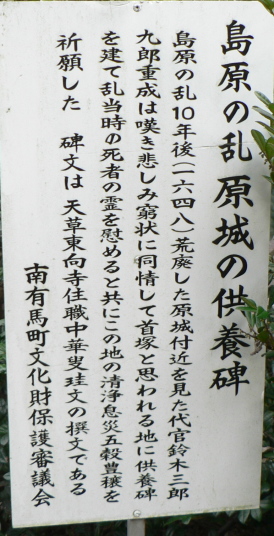 島原の乱 原城の供養碑
島原の乱10年後(一六四八)荒廃した原城付近を見た代官鈴木三郎
九郎重成は嘆き悲しみ窮状に同情して首塚と思われる地に供養碑
を建て乱当時の死者の霊を慰めると共にこの地の清浄息災五穀豊穣を
祈願した 碑文は天草東向寺住職中華叟珪文の撰文である
南有馬町文化財保護審議会